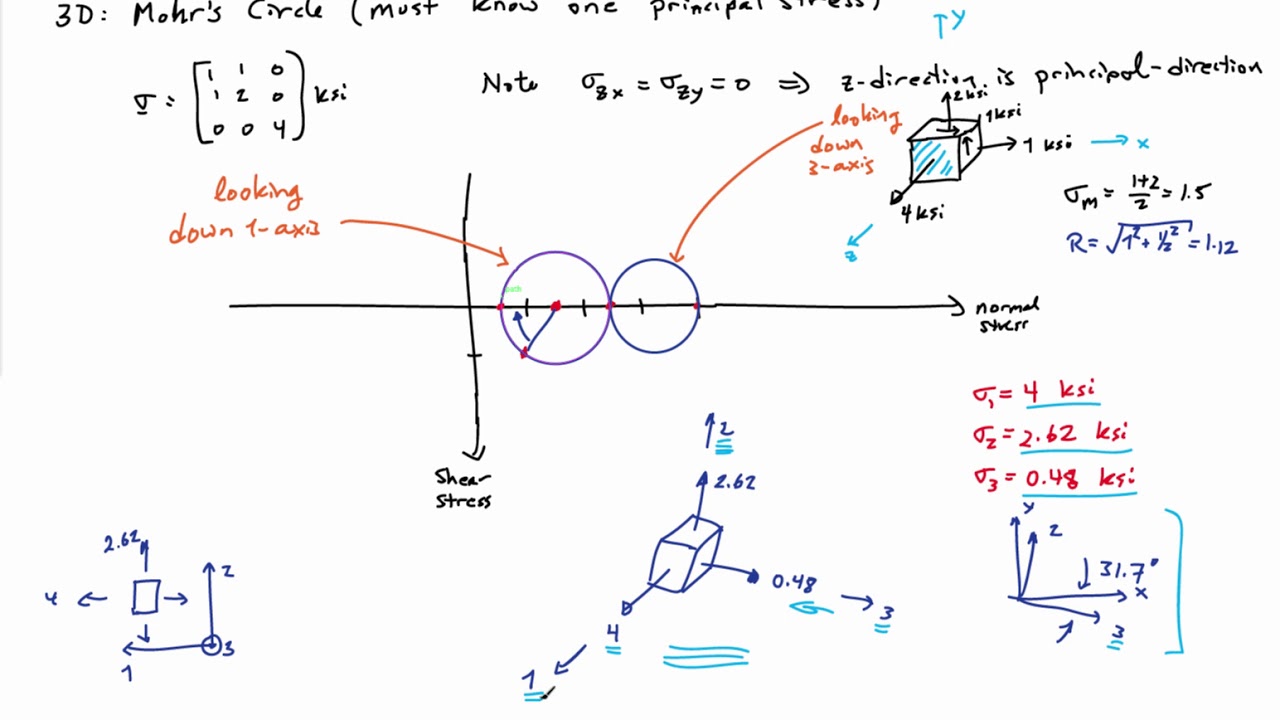 3D: Mohr's Circle (must know one principal stress)
σ = [1 1 0
1 2 0
0 0 4] ksi
Note σzx = σzy = 0 ⇒ z-direction is principal-direction
↑y
2 ksi
1 ksi
1 ksi → x
4 ksi
z
σm = 1+2/2 = 1.5
R = √1² + ½² = 1.12
looking
down
3-axis
looking
down 1-axis
normal
stress
shear
stress
σ1 = 4 ksi
σ2 = 2.62 ksi
σ3 = 0.48 ksi
2
2.62
0.48
3
4
1
2.62
4
2
3
1
y
2
31.7°
x
3